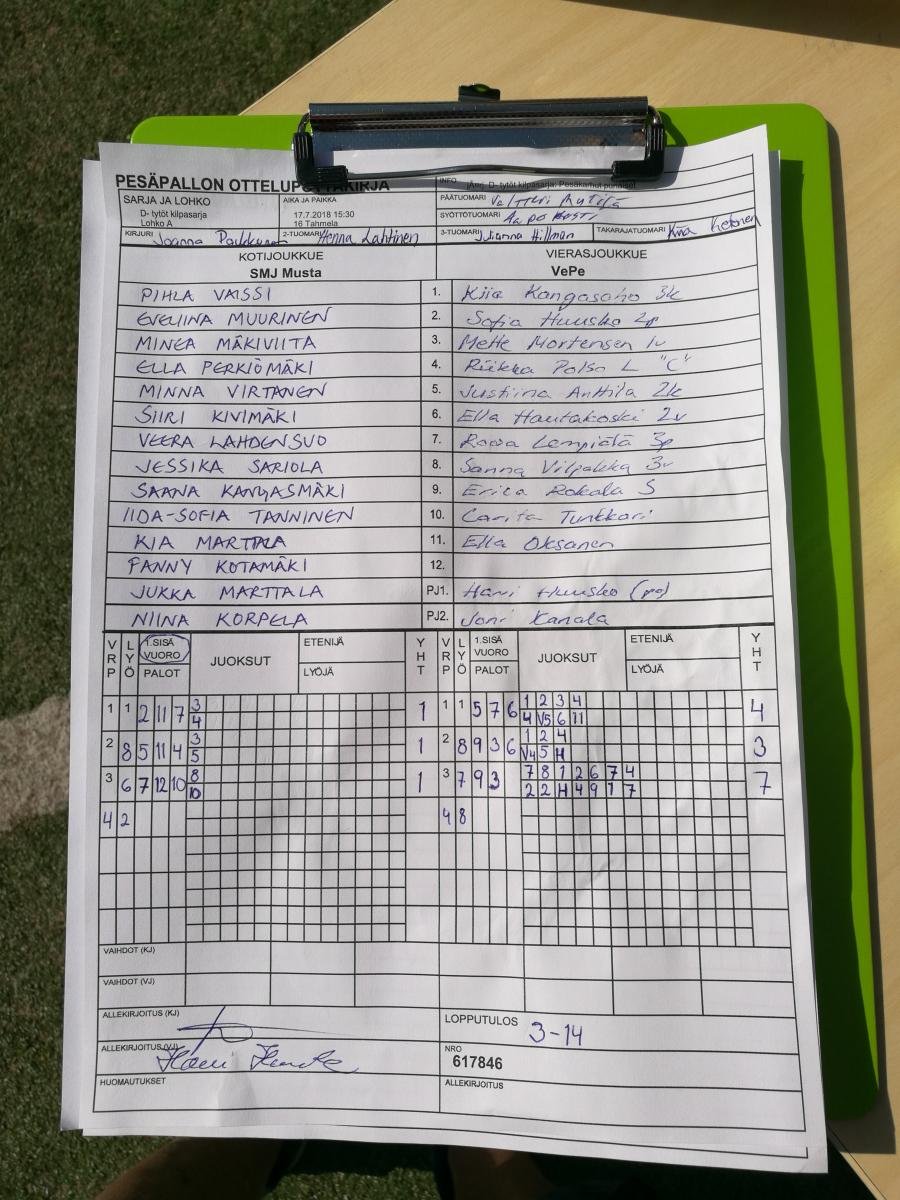 PESÄPALLON OTTELUPÖYTÄKIRJA
INFO Änrj D- tytöt kilpasarja: Pesäkarhut punaiset
SARJA JA LOHKO
D- tytöt kilpasarja
Lohko A
AIKA JA PAIKKA
17.7.2018 15:30
16 Tahmela
PÄÄTUOMARI Valtteri
SYÖTTÖTUOMARI Aapo
KIRJURI Joanna
2-TUOMARI Henna Lahtinen
3-TUOMARI Julianna Hillman
TAKARAJATUOMARI Kiia Ketonen
KOTIJOUKKUE
SMJ Musta
VIERASJOUKKUE
VePe
PIHLA VAISSI 1. Kiia Kangasaho 3k
EVELIINA MUURINEN 2. Sofia Huusko 2p
MINEA MÄKIVIITA 3. Mette Mortensen 1v
ELLA PERKIÖMÄKI 4. Riikka Polso L "C"
MINNA VIRTANEN 5. Justiina Anttila 2k
SIIRI KIVIMÄKI 6. Ella Hautakoski 2v
VEERA LAHDENSUO 7. Roosa Lempiälä 3p
JESSIKA SARIOLA 8. Sanna Vilpakka 3v
SAANA KANGASMÄKI 9. Erica Rokala S
IIDA-SOFIA TANNINEN 10. Carita Tunkkari
KIA MARTTALA 11. Ella Oksanen
FANNY KOTAMÄKI 12.
JUKKA MARTTALA PJ1. Harri Huusko (po)
NIINA KORPELA PJ2. Joni Kanala
VRP LYÖ 1.SISÄ VUORO PALOT JUOKSUT ETENIJÄ LYÖJÄ YHT VRP LYÖ 1.SISÄ VUORO PALOT JUOKSUT ETENIJÄ LYÖJÄ YHT
1 1 2 11 7 3 1 1 1 5 7 6 1 2 3 4 4
4 4 V5 6 11
2 8 5 11 4 3 1 2 8 9 3 6 1 2 4 3
5 V4 5 H
3 6 7 12 10 8 1 3 7 9 3 7 8 1 2 6 7 4 7
10 2 2 H 4 9 1 7
4 2 4 8
VAIHDOT (KJ)
VAIHDOT (VJ)
ALLEKIRJOITUS (KJ)
LOPPUTULOS 3-14
ALLEKIRJOITUS (VJ)
NRO
617846
HUOMAUTUKSET
ALLEKIRJOITUS